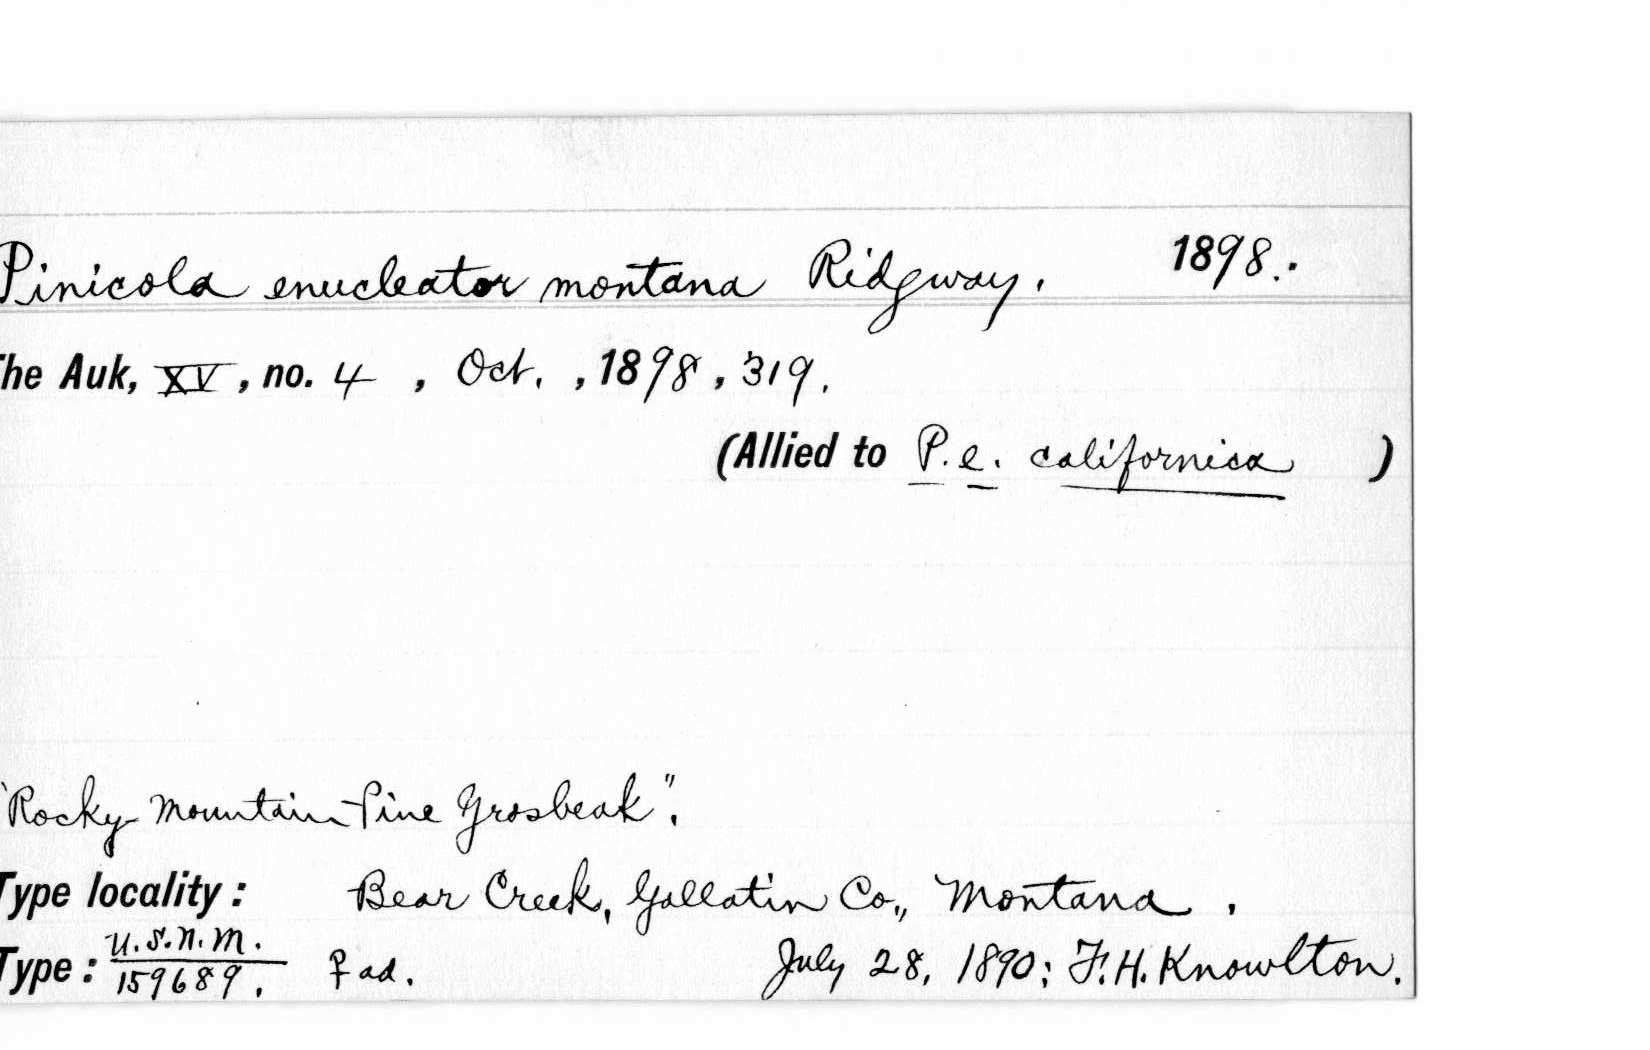 Pinicola enucleator montana Ridgway. 1898.
The Auk, XV, no. 4, Oct., 1898, 319.
(Allied to P. e. californica)
"Rocky Mountain Pine Grosbeak".
Type locality: Bear Creek, Gallatin Co., Montana.
U.S.N.M.
Type: 159689. ♀ ad. July 28, 1890; F.H. Knowlton.